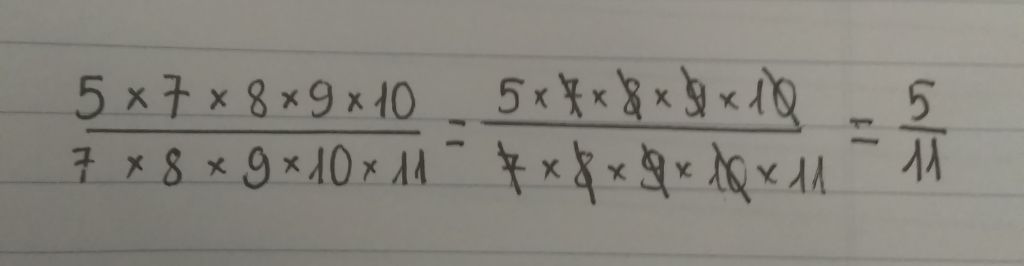 5 × 7 × 8 × 9 × 10 / 7 × 8 × 9 × 10 × 11 = 5 × 7 × 8 × 9 × 10 / 7 × 8 × 9 × 10 × 11 = 5 / 11